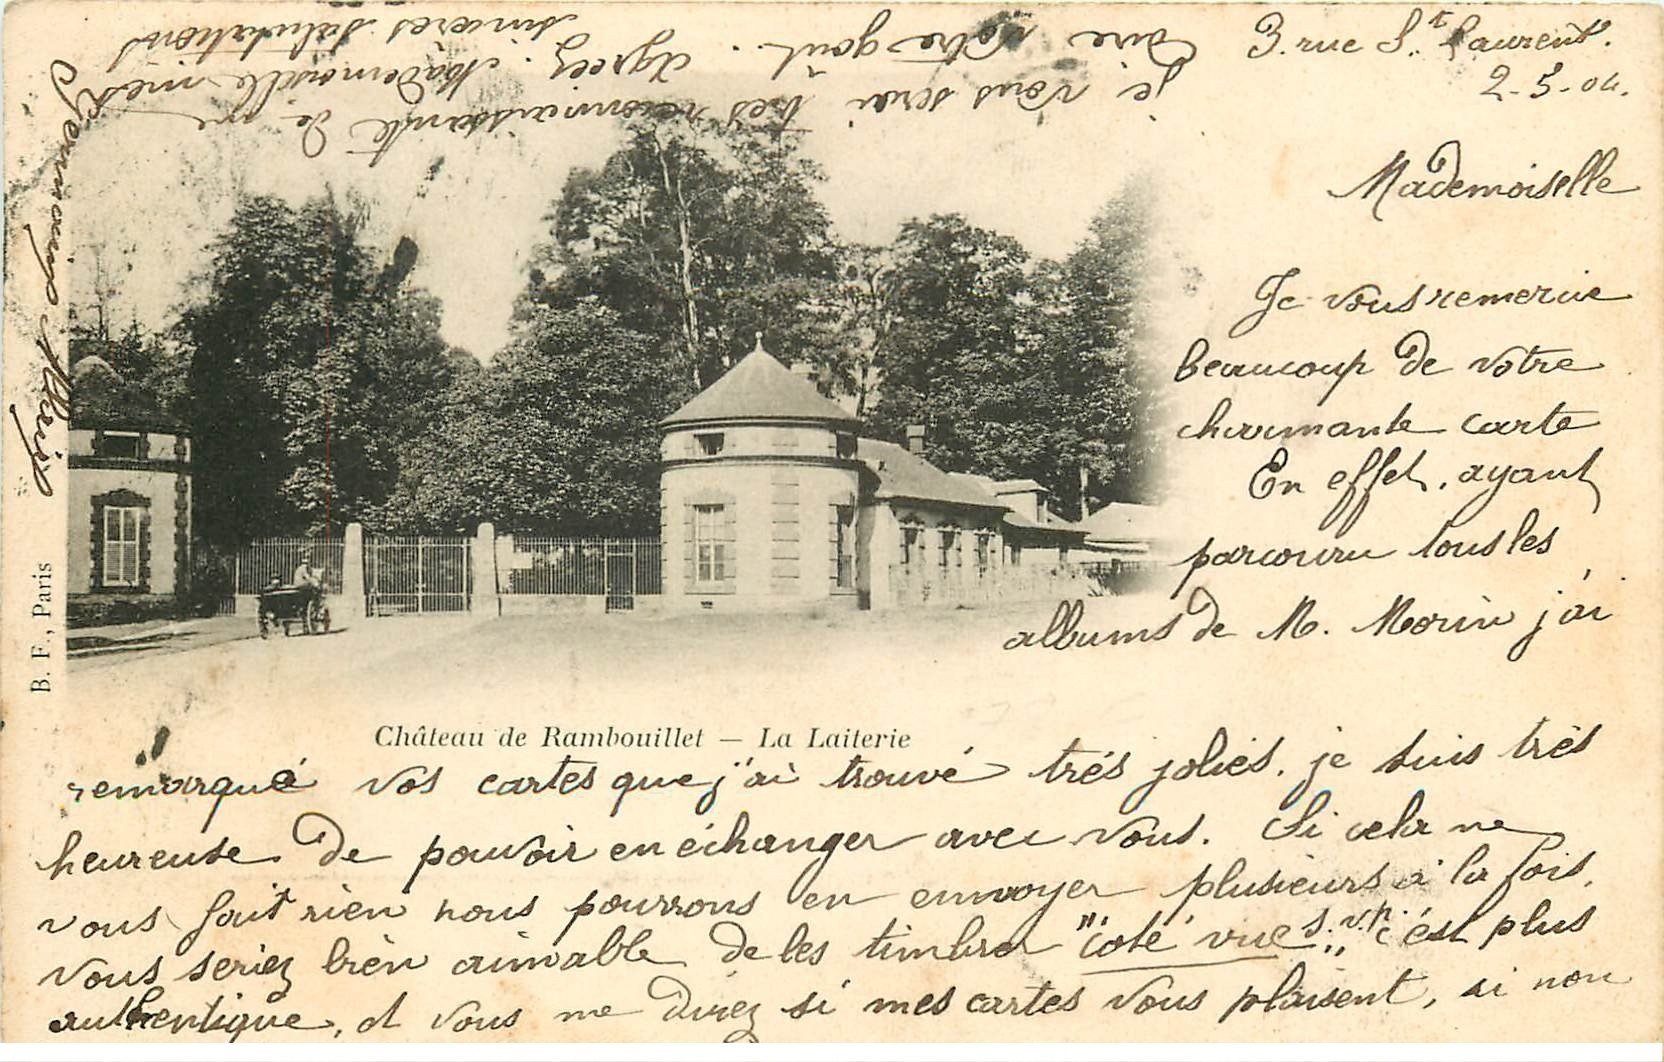 3. rue St. Laurent.
2-5-04.
Mademoiselle
Je vous remercie
beaucoup de votre
charmante carte
En effet, ayant
parcouru tous les
albums de M. Morin j'ai
Château de Rambouillet — La Laiterie
remarqué vos cartes que j'ai trouvé très jolies. je suis très
heureuse de pouvoir en échanger avec vous. Si cela ne
vous fait rien nous pourrons en envoyer plusieurs à la fois.
Vous seriez bien aimable de les timbrer "coté vue" s.v.p. c'est plus
authentique, et vous me direz si mes cartes vous plaisent, si non
je vous serai très reconnaissante de me
dire votre goût. Agréez. Mademoiselle mes
sincères salutations
Germaine
B. F., Paris